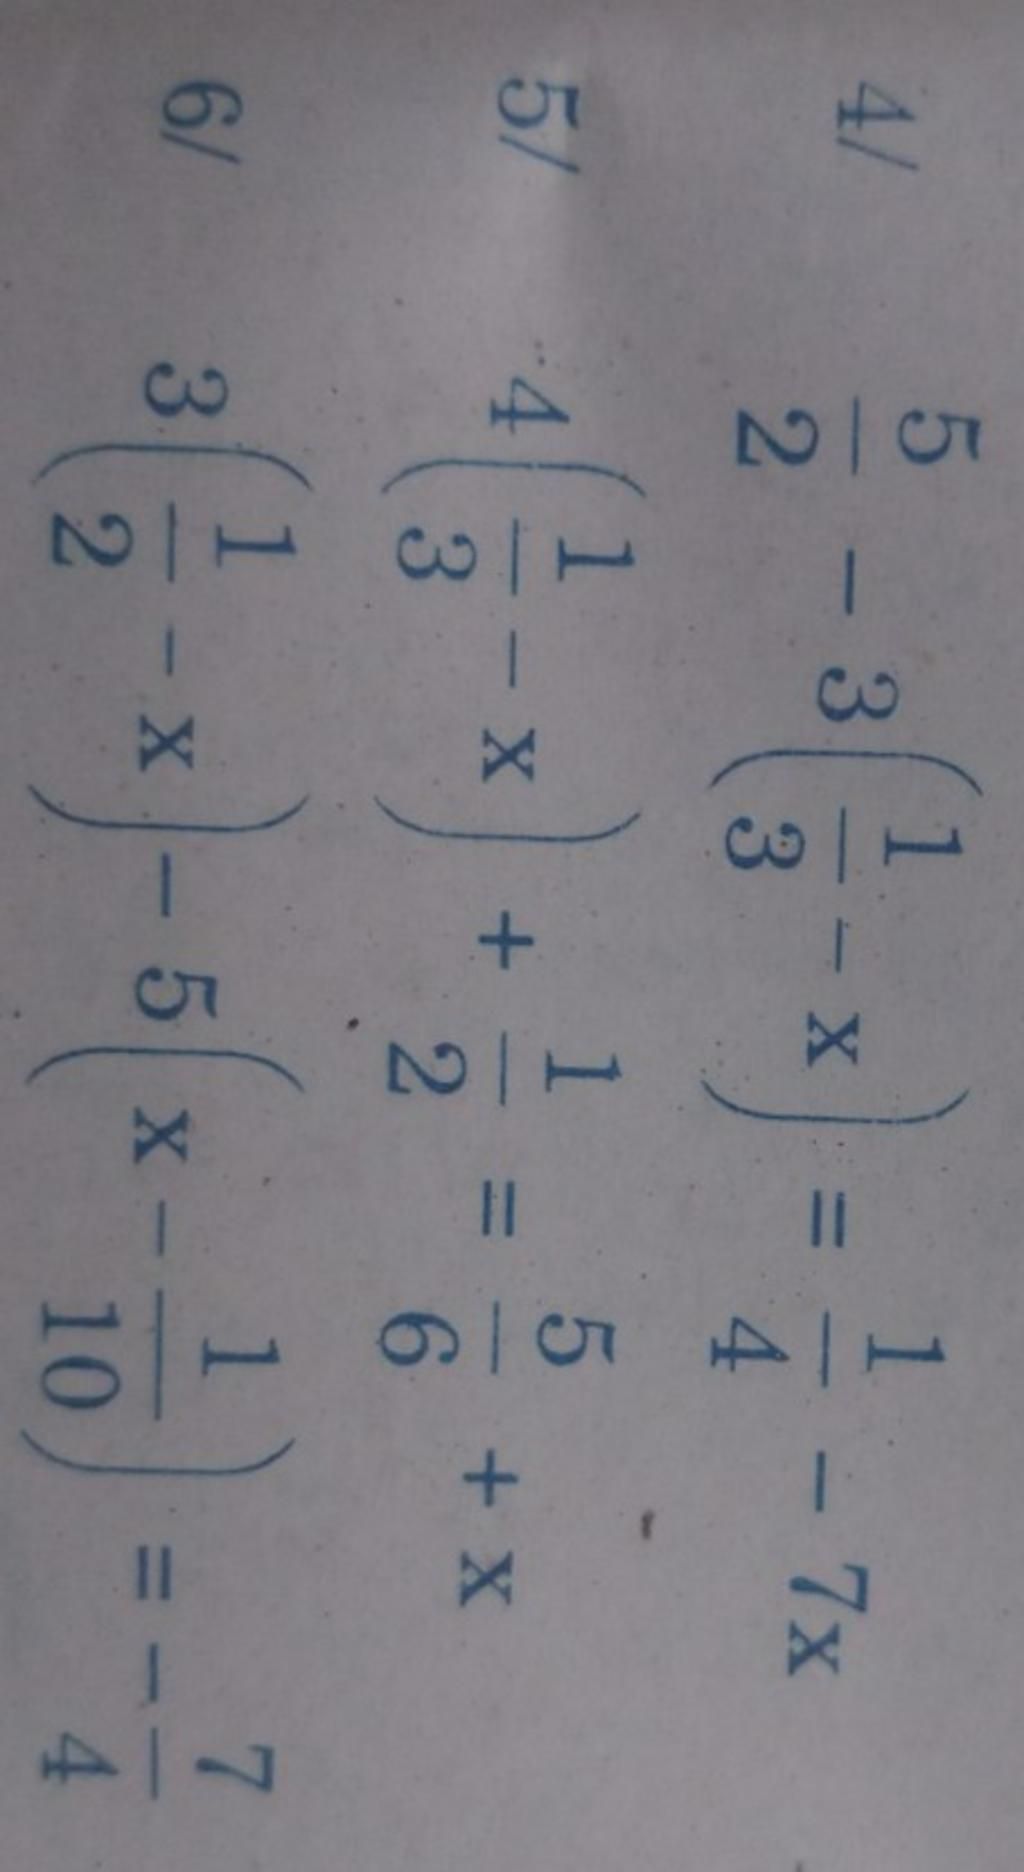 4/ 5/2 - 3(1/3 - x) = 1/4 - 7x
5/ 4(1/3 - x) + 1/2 = 5/6 + x
6/ 3(1/2 - x) - 5(x - 1/10) = - 7/4